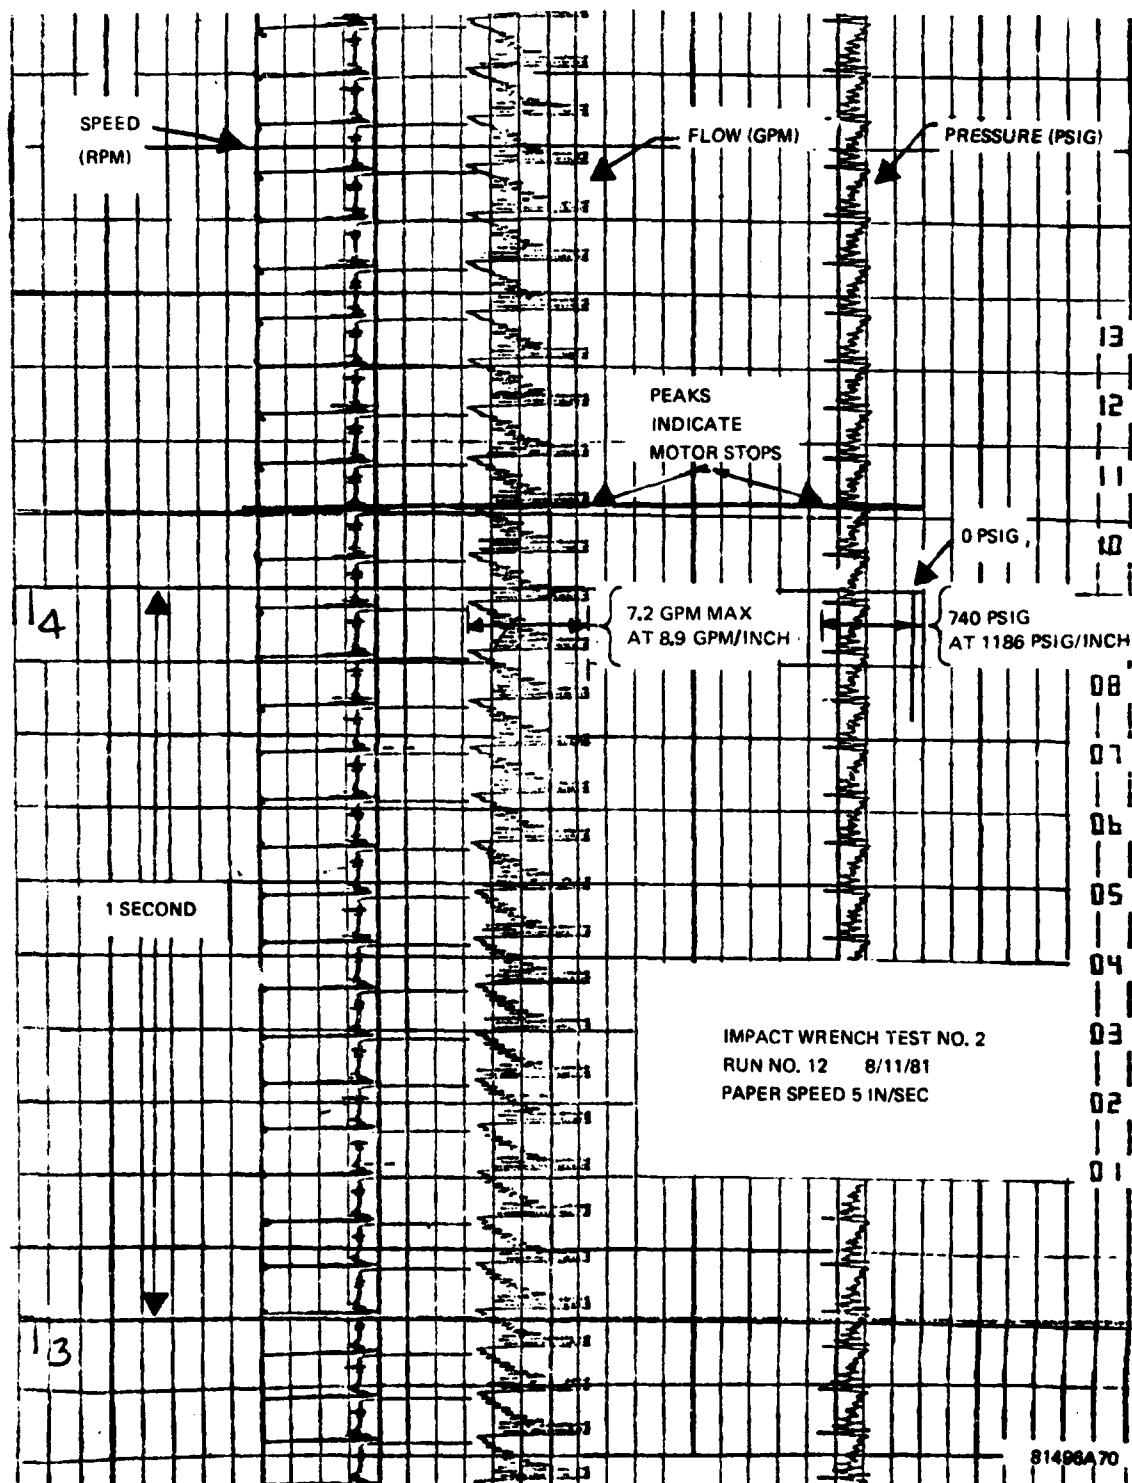 SPEED
(RPM)
FLOW (GPM)
PRESSURE (PSIG)
13
12
11
10
PEAKS
INDICATE
MOTOR STOPS
0 PSIG
14
7.2 GPM MAX
AT 8.9 GPM/INCH
740 PSIG
AT 1186 PSIG/INCH
08
07
06
05
04
03
02
01
1 SECOND
IMPACT WRENCH TEST NO. 2
RUN NO. 12 8/11/81
PAPER SPEED 5 IN/SEC
13
81496A70